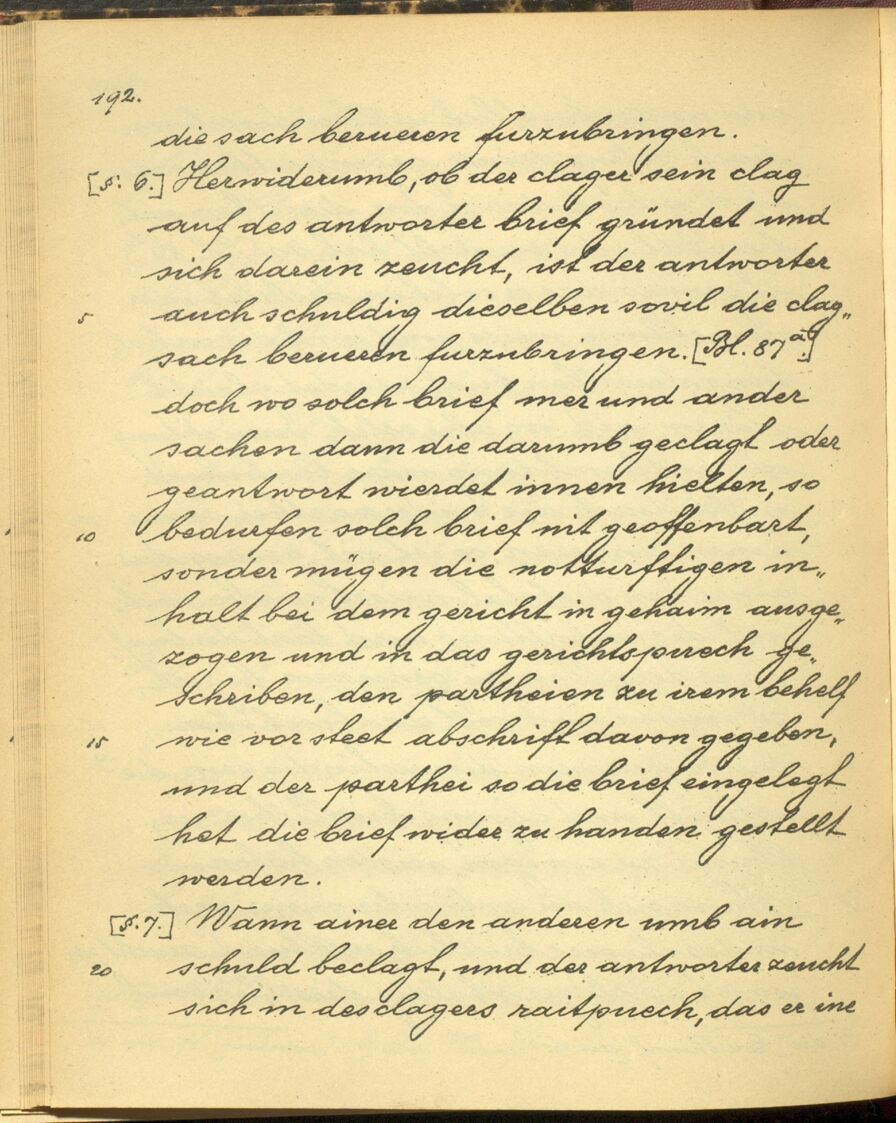 192.
die sach berueren furzubringen.
[§. 6.] Herwiderumb, ob der clager sein clag
auf des antworter brief gründet und
sich darein zeucht, ist der antworter
5 auch schuldig dieselben sovil die clag„
sach berueren furzubringen. [Bl. 87a.]
doch wo solch brief mer und ander
sachen dann die darumb geclagt oder
geantwort wierdet innen hielten, so
10 bedurfen solch brief nit geoffenbart,
sonder mügen die notturftigen in„
halt bei dem gericht in gehaim ausge„
zogen und in das gerichtspuech ge„
schriben, den partheien zu irem behelf
15 wie vor steet abschrift davon gegeben,
und der parthei so die brief eingelegt
het die brief wider zu handen gestellt
werden.
[§. 7.] Wann ainer den anderen umb ain
20 schuld beclagt, und der antworter zeucht
sich in des clagers raitpuech, das er ine